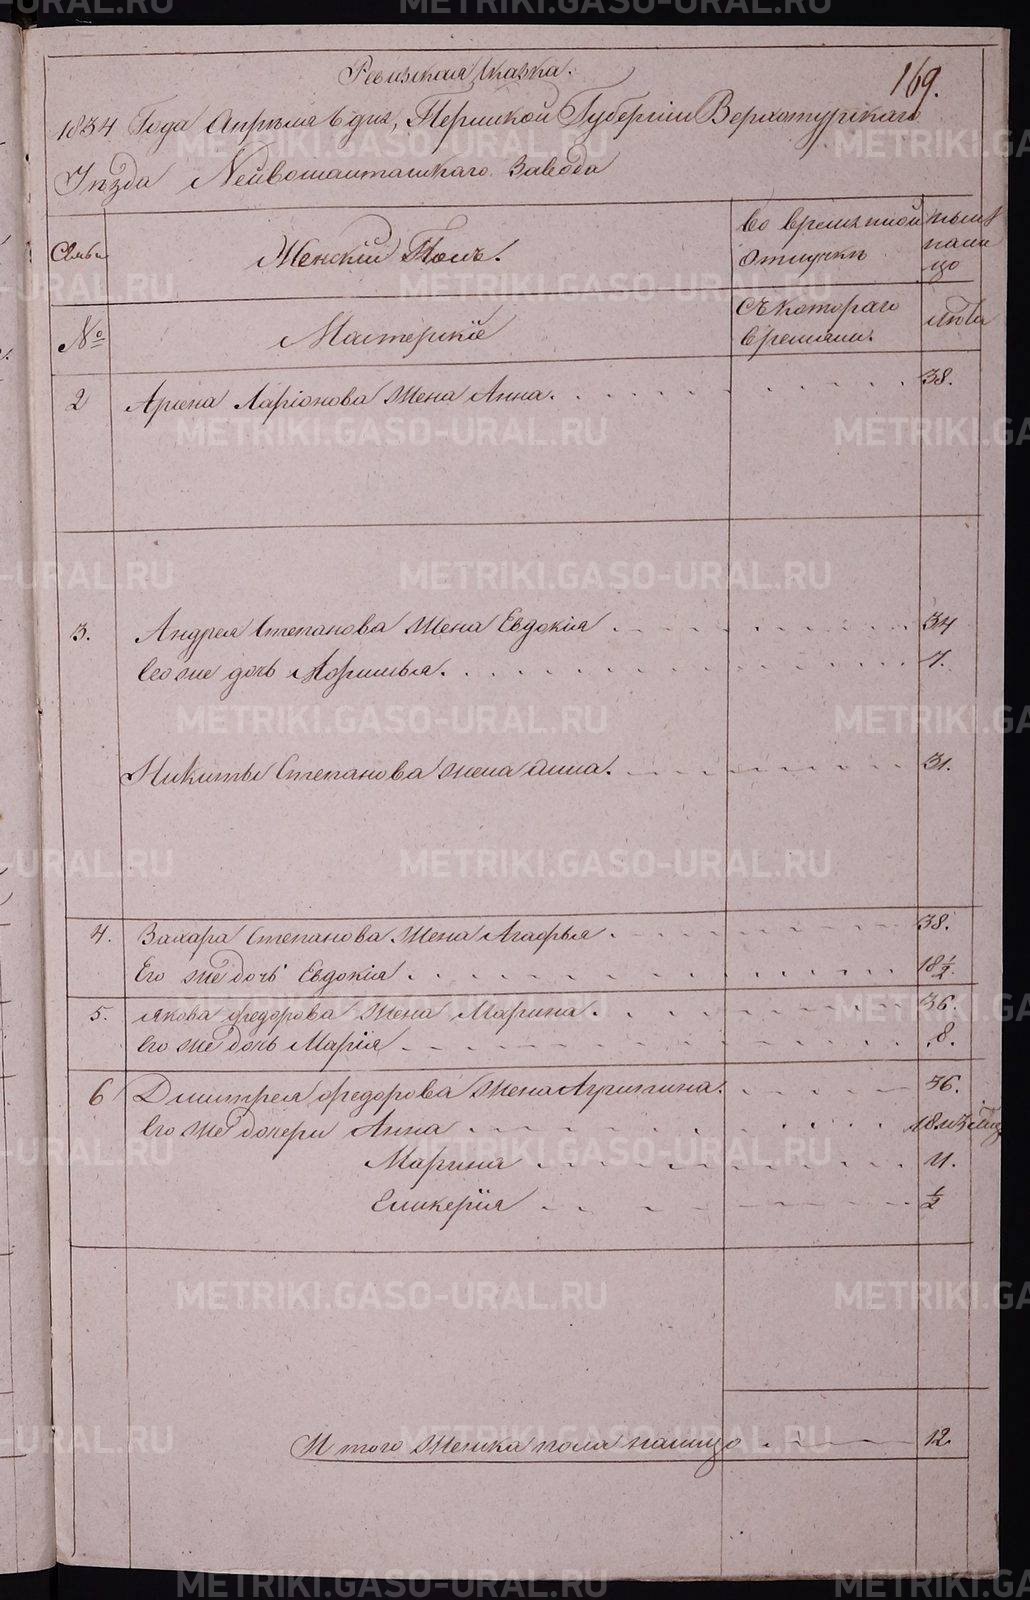 Ревизская Сказка.
169.
1834 Года Апреля 6 дня, Пермской Губернии Верхотурскаго
Уезда Нейвошайтанскаго Завода
Семьи
Женскій Полъ.
Во временной отлучке
ныне налицо
№
Мастерскіе
Съ котораго времени.
лета
2 Арсена Ларіонова жена Анна. 38.
3. Андрея Степанова жена Евдокія 34
Его же дочь 7.
Никиты Степанова жена Анна. 31.
4. Захара Степанова жена Агафья. 38.
Его же дочь Евдокія 18 1/2.
5. Якова Федорова жена Марина. 36.
Его же дочь Марія 8.
6 Дмитрея Федорова жена Агрипина.
Его же дочери Анна
Марина 11.
Гликерія 1/2
И того женска пола налицо 12.
METRIKI.GASO-URAL.RU